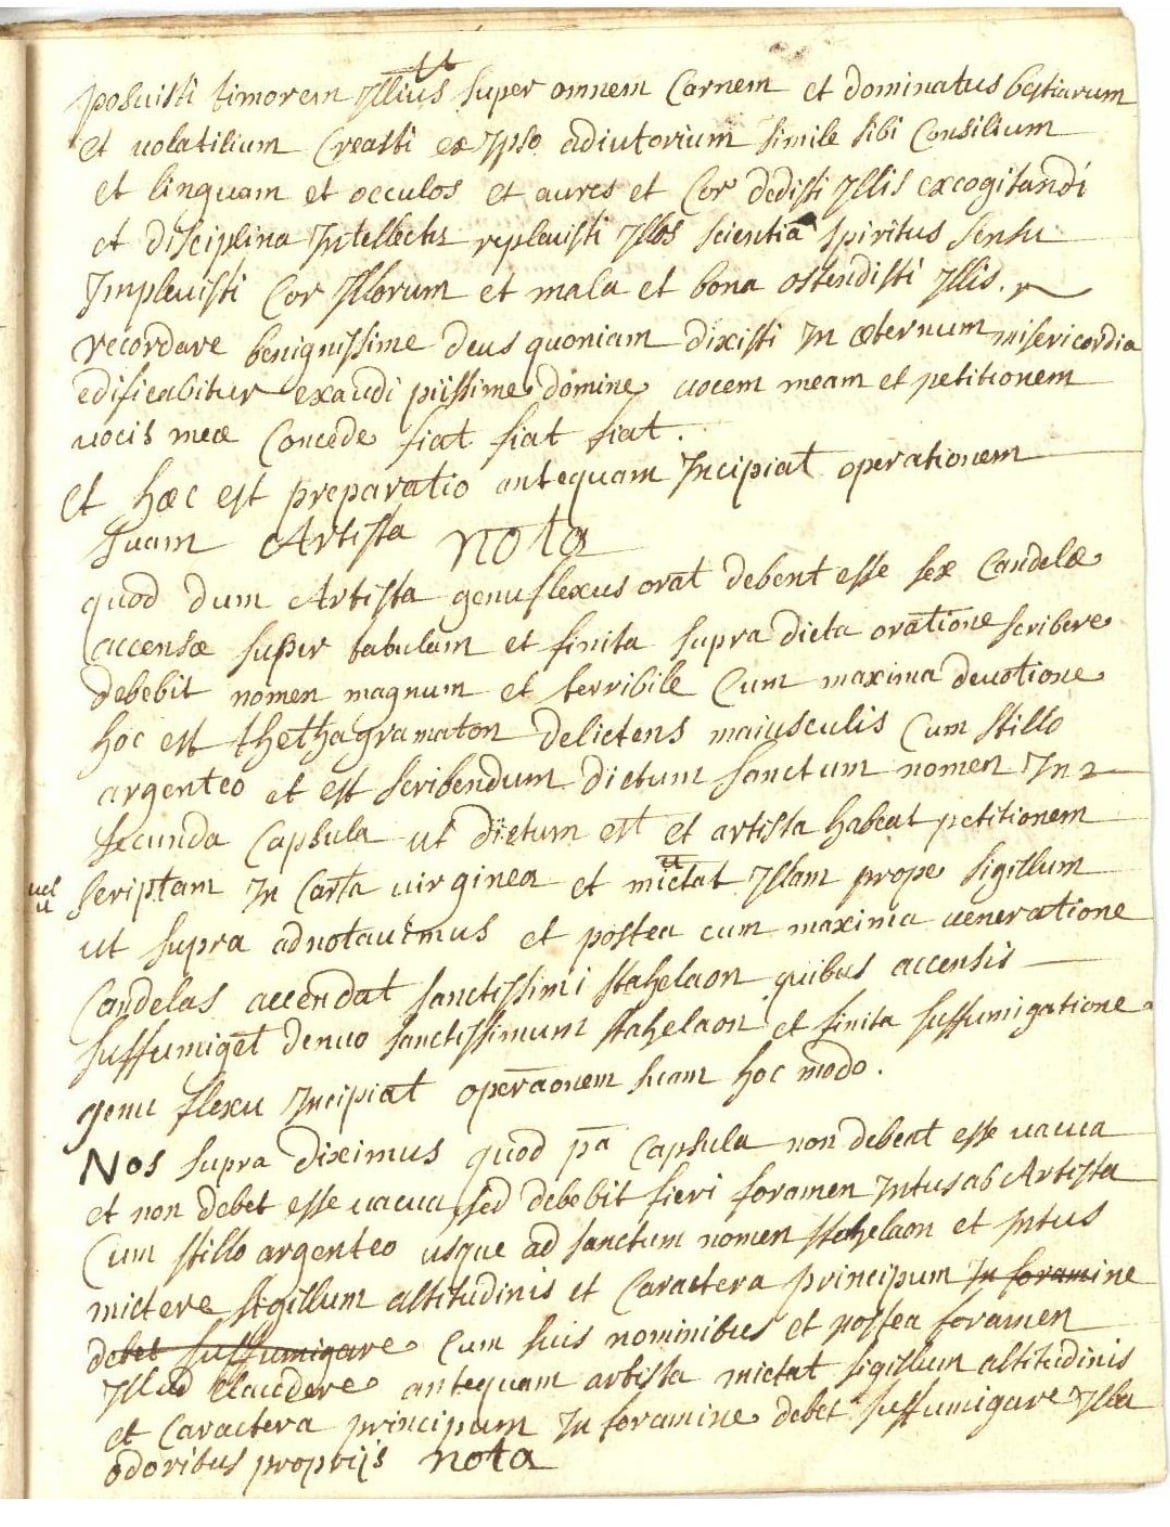 posuisti timorem Yllius super omnem Carnem et dominatus bestiarum
et uolatilium Creasti ex Ypso adiutorium simile sibi Consilium
et linguam et occulos et aures et Cor dedisti Yllis excogitandi
et disciplina Intellectus repleuisti Yllos scientia spiritus sensu
Impleuisti Cor Yllorum et mala et bona ostendisti Yllis.
recordare benignissime deus quoniam dixisti In æternum misericordia
edificabitur exaudi piissime domine uocem meam et petitionem
uocis meæ Concede fiat fiat fiat.
et hæc est preparatio antequam Incipiat operationem
suam Artista nota
quod dum Artista genuflexus orat debent esse sex Candelæ
accensæ super tabulam et finita supra dicta oratione scribere
debebit nomen magnum et terribile Cum maxima deuotione
hoc est thethagramaton delictens maiusculis Cum stillo
argenteo et est scribendum dictum sanctum nomen In
secunda Capsula ut dictum est et artista habeat petitionem
uel scriptam In Carta uirginea et mictat Yllam prope sigillum
ut supra adnotauimus et postea cum maxima ueneratione
Candelas accendat sanctissimi stahelaon quibus accensis
suffumiget denuo sanctissimum stahelaon et finita suffumigatione
genu flexu Incipiat operaonem suam hoc modo.
Nos supra diximus quod pa Capsula non debeat esse uacua
et non debet esse uacua sed debebit fieri foramen Intus ab Artista
Cum stillo argenteo usque ad sanctum nomen stahelaon et Intus
mictere sigillum altitudinis et Caractera principum In foramine
debet suffumigare Cum suis nominibus et postea foramen
Yllud claudere antequam artista mictat sigillum altitudinis
et Caractera principum In foramine debet suffumigare Ylla
odoribus proprijs nota